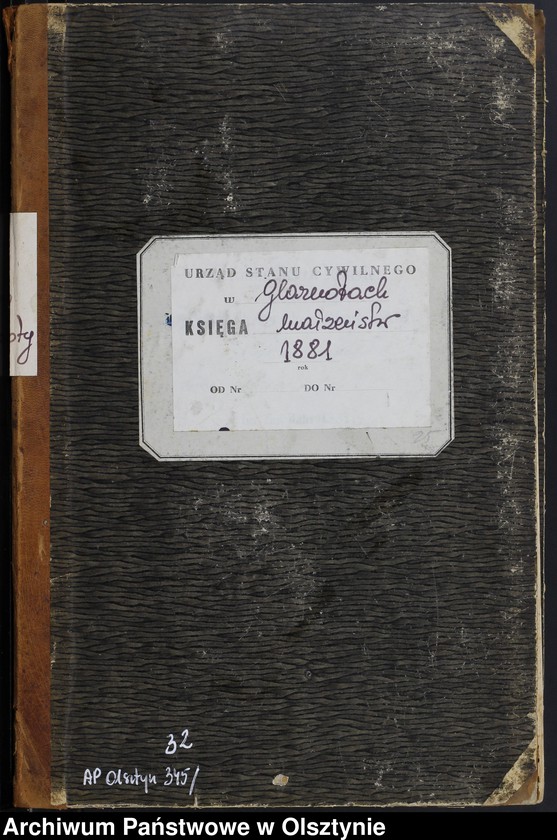 URZĄD STANU CYWILNEGO
w Glaznotach
KSIĘGA małżeństw
1881
rok
OD Nr DO Nr
oty
25
32
AP Olsztyn 345/
Archiwum Państwowe w Olsztynie